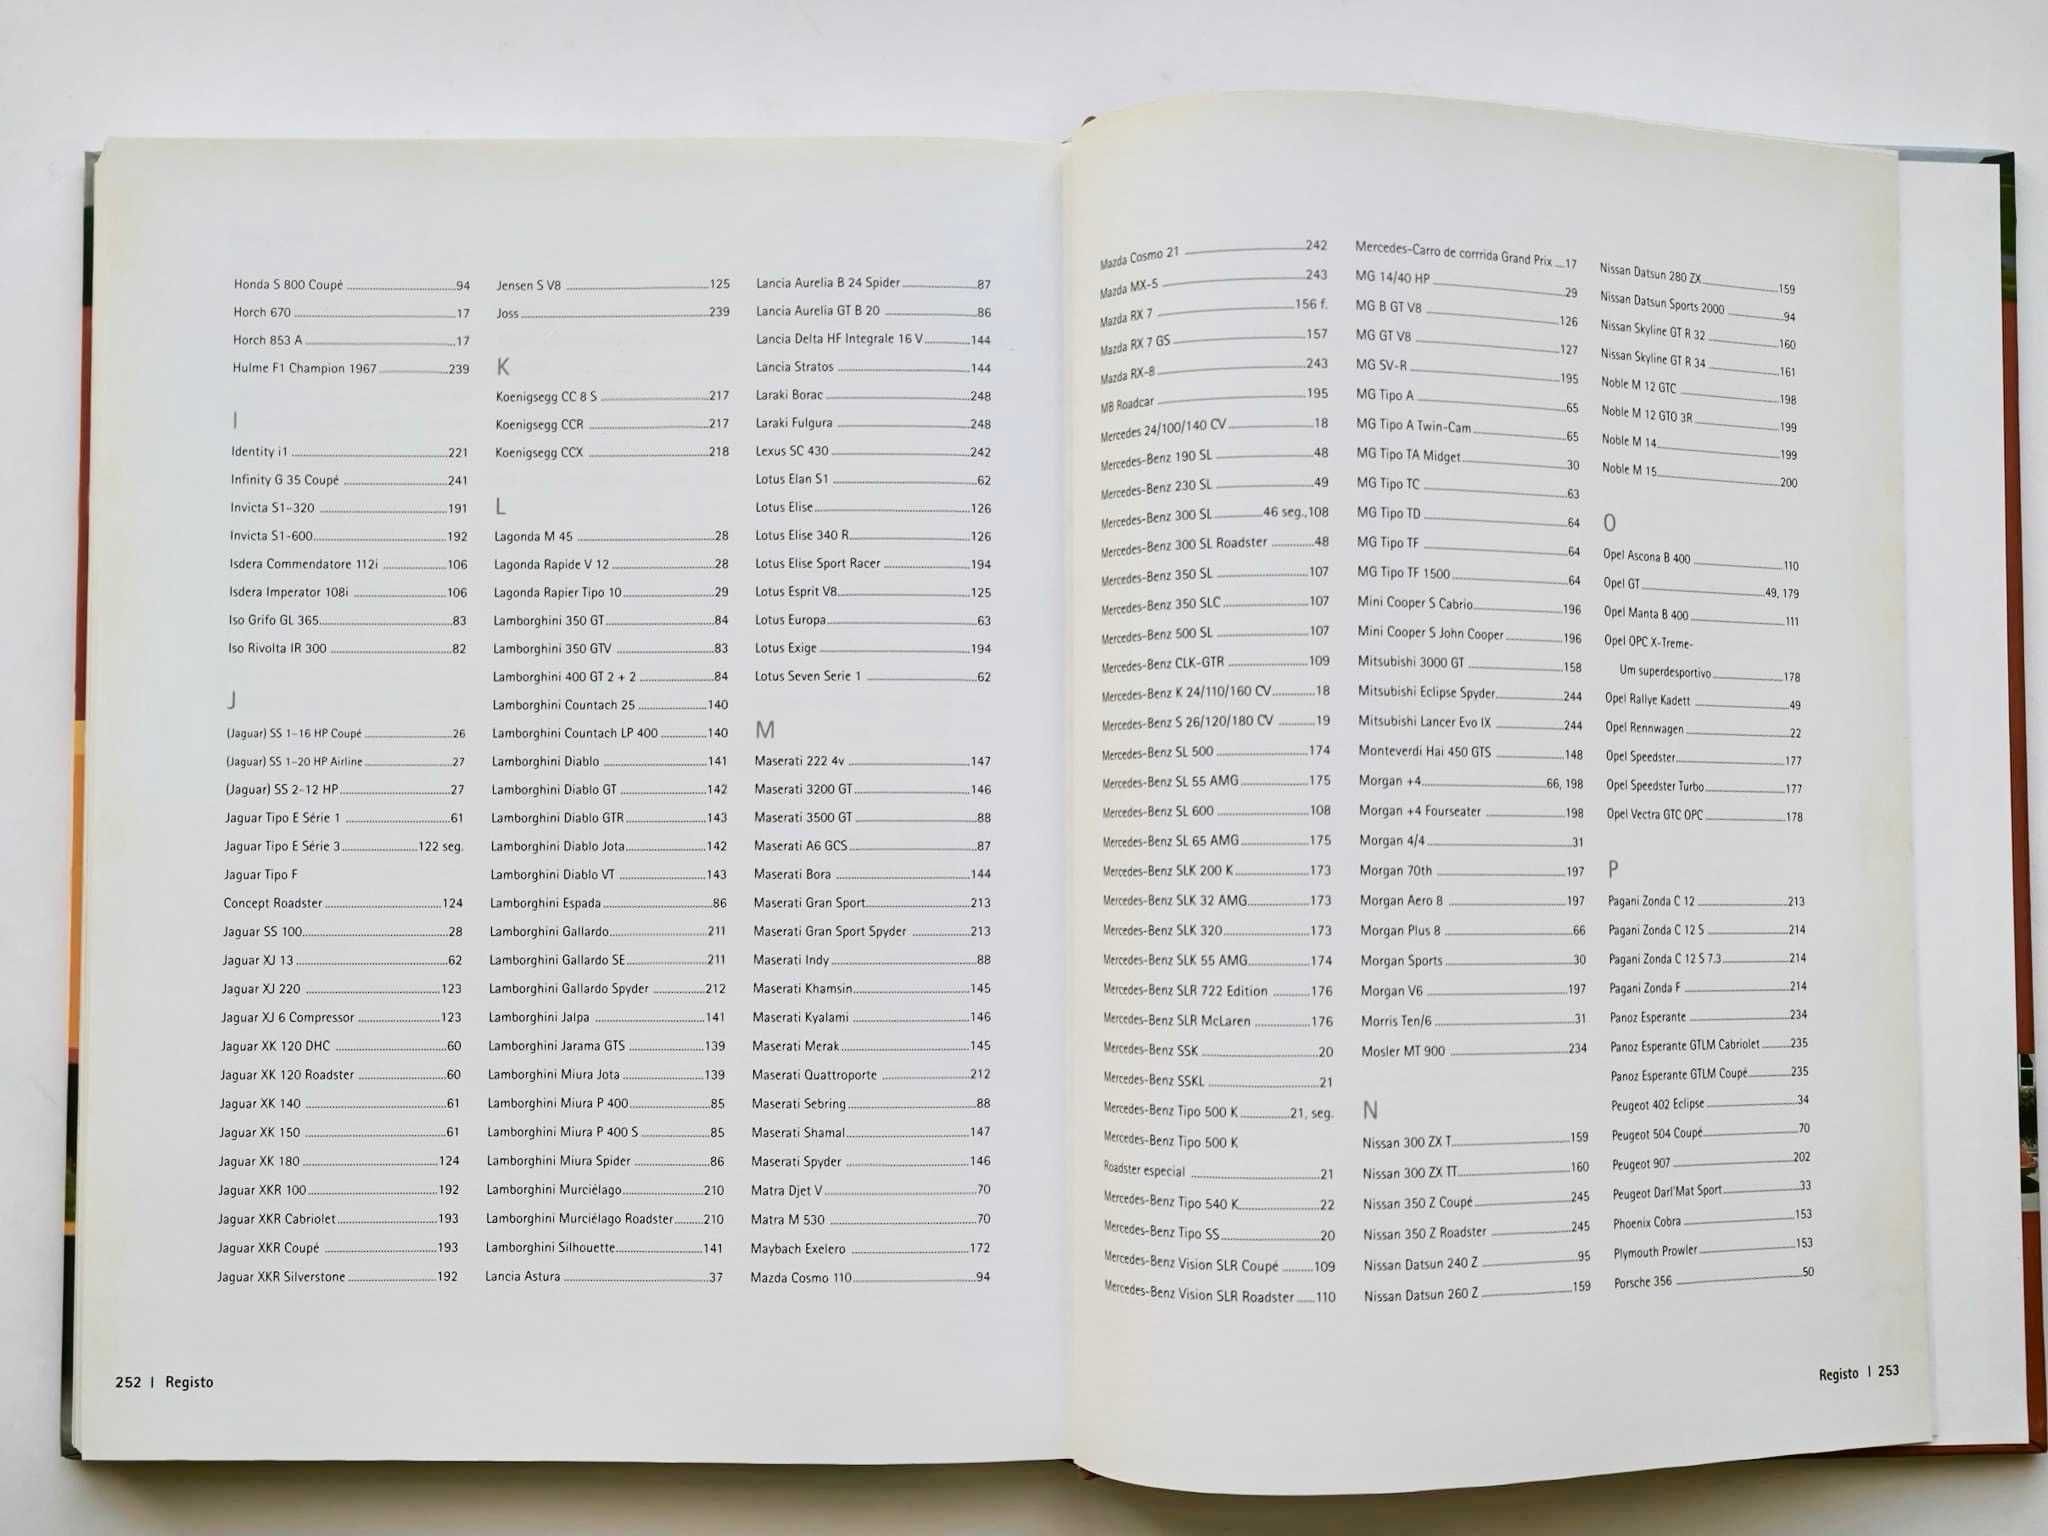 Honda S 800 Coupé 94
Horch 670 17
Horch 853 A 17
Hulme F1 Champion 1967 239
I
Identity i1 221
Infinity G 35 Coupé 241
Invicta S1-320 191
Invicta S1-600 192
Isdera Commendatore 112i 106
Isdera Imperator 108i 106
Iso Grifo GL 365 83
Iso Rivolta IR 300 82
J
(Jaguar) SS 1-16 HP Coupé 26
(Jaguar) SS 1-20 HP Airline 27
(Jaguar) SS 2-12 HP 27
Jaguar Tipo E Série 1 61
Jaguar Tipo E Série 3 122 seg.
Jaguar Tipo F
Concept Roadster 124
Jaguar SS 100 28
Jaguar XJ 13 62
Jaguar XJ 220 123
Jaguar XJ 6 Compressor 123
Jaguar XK 120 DHC 60
Jaguar XK 120 Roadster 60
Jaguar XK 140 61
Jaguar XK 150 61
Jaguar XK 180 124
Jaguar XKR 100 192
Jaguar XKR Cabriolet 193
Jaguar XKR Coupé 193
Jaguar XKR Silverstone 192
Jensen S V8 125
Joss 239
K
Koenigsegg CC 8 S 217
Koenigsegg CCR 217
Koenigsegg CCX 218
L
Lagonda M 45 28
Lagonda Rapide V 12 28
Lagonda Rapier Tipo 10 29
Lamborghini 350 GT 84
Lamborghini 350 GTV 83
Lamborghini 400 GT 2 + 2 84
Lamborghini Countach 25 140
Lamborghini Countach LP 400 140
Lamborghini Diablo 141
Lamborghini Diablo GT 142
Lamborghini Diablo GTR 143
Lamborghini Diablo Jota 142
Lamborghini Diablo VT 143
Lamborghini Espada 86
Lamborghini Gallardo 211
Lamborghini Gallardo SE 211
Lamborghini Gallardo Spyder 212
Lamborghini Jalpa 141
Lamborghini Jarama GTS 139
Lamborghini Miura Jota 139
Lamborghini Miura P 400 85
Lamborghini Miura P 400 S 85
Lamborghini Miura Spider 86
Lamborghini Murciélago 210
Lamborghini Murciélago Roadster 210
Lamborghini Silhouette 141
Lancia Astura 37
Lancia Aurelia B 24 Spider 87
Lancia Aurelia GT B 20 86
Lancia Delta HF Integrale 16 V 144
Lancia Stratos 144
Laraki Borac 248
Laraki Fulgura 248
Lexus SC 430 242
Lotus Elan S1 62
Lotus Elise 126
Lotus Elise 340 R 126
Lotus Elise Sport Racer 194
Lotus Esprit V8 125
Lotus Europa 63
Lotus Exige 194
Lotus Seven Serie 1 62
M
Maserati 222 4v 147
Maserati 3200 GT 146
Maserati 3500 GT 88
Maserati A6 GCS 87
Maserati Bora 144
Maserati Gran Sport 213
Maserati Gran Sport Spyder 213
Maserati Indy 88
Maserati Khamsin 145
Maserati Kyalami 146
Maserati Merak 145
Maserati Quattroporte 212
Maserati Sebring 88
Maserati Shamal 147
Maserati Spyder 146
Matra Djet V 70
Matra M 530 70
Maybach Exelero 172
Mazda Cosmo 110 94
252 | Registo
Mazda Cosmo 21 242
Mazda MX-5 243
Mazda RX 7 156 f.
Mazda RX 7 GS 157
Mazda RX-8 243
MB Roadcar 195
Mercedes 24/100/140 CV 18
Mercedes-Benz 190 SL 48
Mercedes-Benz 230 SL 49
Mercedes-Benz 300 SL 46 seg.,108
Mercedes-Benz 300 SL Roadster 48
Mercedes-Benz 350 SL 107
Mercedes-Benz 350 SLC 107
Mercedes-Benz 500 SL 107
Mercedes-Benz CLK-GTR 109
Mercedes-Benz K 24/110/160 CV 18
Mercedes-Benz S 26/120/180 CV 19
Mercedes-Benz SL 500 174
Mercedes-Benz SL 55 AMG 175
Mercedes-Benz SL 600 108
Mercedes-Benz SL 65 AMG 175
Mercedes-Benz SLK 200 K 173
Mercedes-Benz SLK 32 AMG 173
Mercedes-Benz SLK 320 173
Mercedes-Benz SLK 55 AMG 174
Mercedes-Benz SLR 722 Edition 176
Mercedes-Benz SLR McLaren 176
Mercedes-Benz SSK 20
Mercedes-Benz SSKL 21
Mercedes-Benz Tipo 500 K 21, seg.
Mercedes-Benz Tipo 500 K
Roadster especial 21
Mercedes-Benz Tipo 540 K 22
Mercedes-Benz Tipo SS 20
Mercedes-Benz Vision SLR Coupé 109
Mercedes-Benz Vision SLR Roadster 110
Mercedes-Carro de corrrida Grand Prix 17
MG 14/40 HP 29
MG B GT V8 126
MG GT V8 127
MG SV-R 195
MG Tipo A 65
MG Tipo A Twin-Cam 65
MG Tipo TA Midget 30
MG Tipo TC 63
MG Tipo TD 64
MG Tipo TF 64
MG Tipo TF 1500 64
Mini Cooper S Cabrio 196
Mini Cooper S John Cooper 196
Mitsubishi 3000 GT 158
Mitsubishi Eclipse Spyder 244
Mitsubishi Lancer Evo IX 244
Monteverdi Hai 450 GTS 148
Morgan +4 66, 198
Morgan +4 Fourseater 198
Morgan 4/4 31
Morgan 70th 197
Morgan Aero 8 197
Morgan Plus 8 66
Morgan Sports 30
Morgan V6 197
Morris Ten/6 31
Mosler MT 900 234
N
Nissan 300 ZX T 159
Nissan 300 ZX TT 160
Nissan 350 Z Coupé 245
Nissan 350 Z Roadster 245
Nissan Datsun 240 Z 95
Nissan Datsun 260 Z 159
Nissan Datsun 280 ZX 159
Nissan Datsun Sports 2000 94
Nissan Skyline GT R 32 160
Nissan Skyline GT R 34 161
Noble M 12 GTC 198
Noble M 12 GTO 3R 199
Noble M 14 199
Noble M 15 200
O
Opel Ascona B 400 110
Opel GT 49, 179
Opel Manta B 400 111
Opel OPC X-Treme-
Um superdesportivo 178
Opel Rallye Kadett 49
Opel Rennwagen 22
Opel Speedster 177
Opel Speedster Turbo 177
Opel Vectra GTC OPC 178
P
Pagani Zonda C 12 213
Pagani Zonda C 12 S 214
Pagani Zonda C 12 S 7.3 214
Pagani Zonda F 214
Panoz Esperante 234
Panoz Esperante GTLM Cabriolet 235
Panoz Esperante GTLM Coupé 235
Peugeot 402 Eclipse 34
Peugeot 504 Coupé 70
Peugeot 907 202
Peugeot Darl'Mat Sport 33
Phoenix Cobra 153
Plymouth Prowler 153
Porsche 356 50
Registo | 253